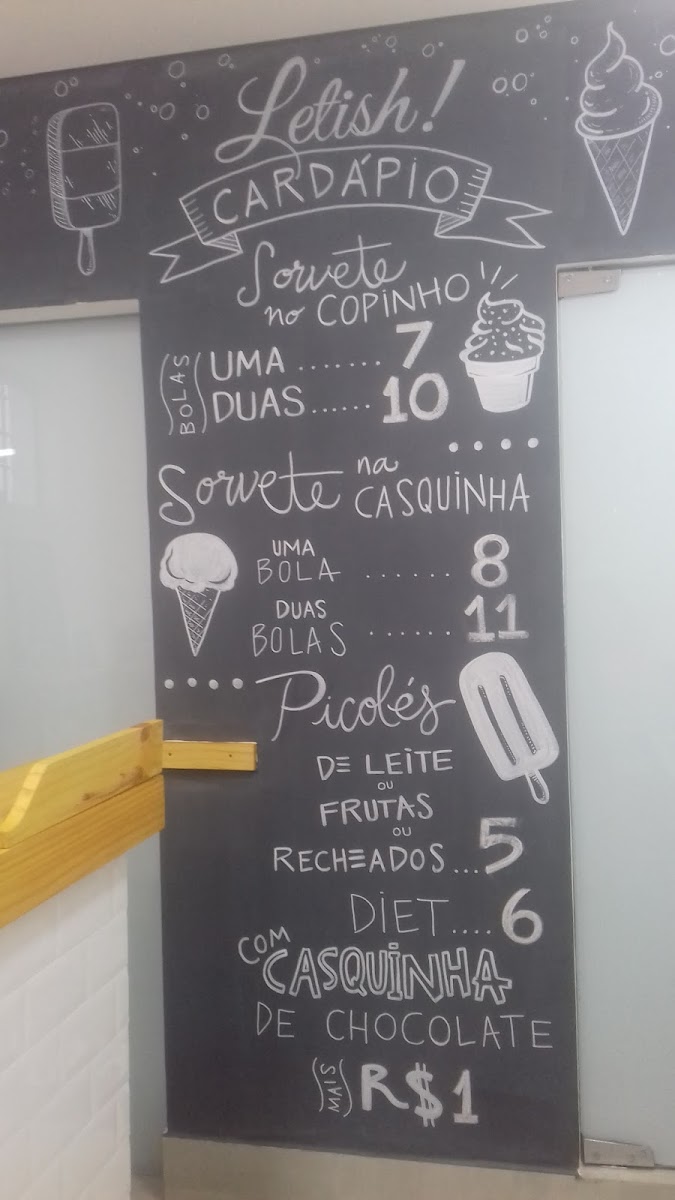 Letish!
CARDÁPIO
Sorvete
no COPINHO
BOLAS
UMA ........ 7
DUAS ...... 10
Sorvete na
CASQUINHA
UMA
BOLA ...... 8
DUAS
BOLAS ...... 11
Picolés
DE LEITE
OU
FRUTAS
OU
RECHEADOS ... 5
DIET .... 6
COM
CASQUINHA
DE CHOCOLATE
MAIS R$1